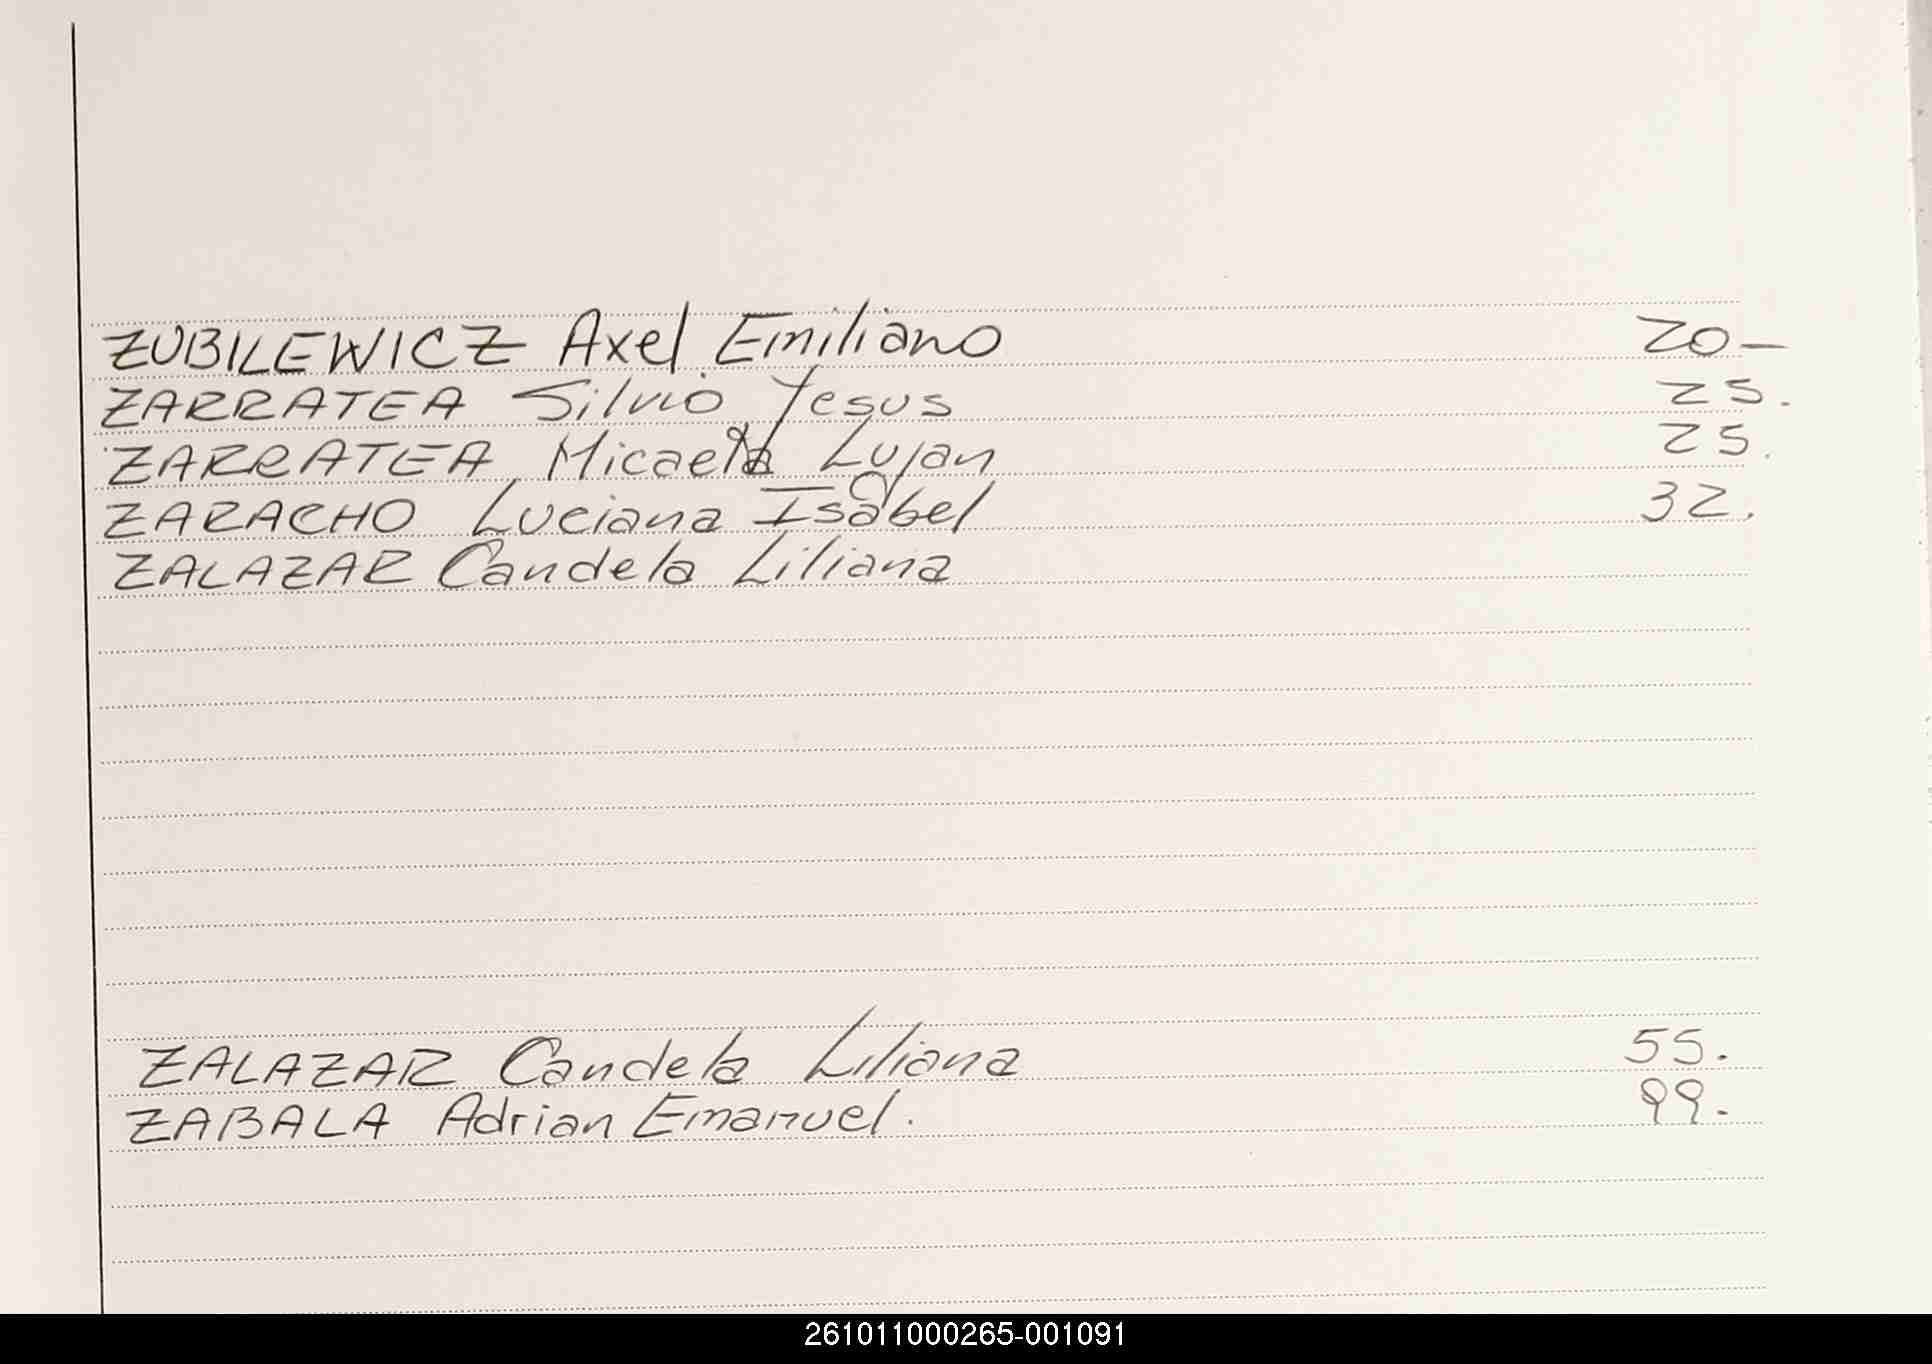 ZUBILEWICZ Axel Emiliano 20-
ZARRATEA Silvio Jesus 25.
ZARRATEA Micaela Lujan 25.
ZARACHO Luciana Isabel 32.
ZALAZAR Candela Liliana
ZALAZAR Candela Liliana 55.
ZABALA Adrian Emanuel. 99.
261011000265-001091